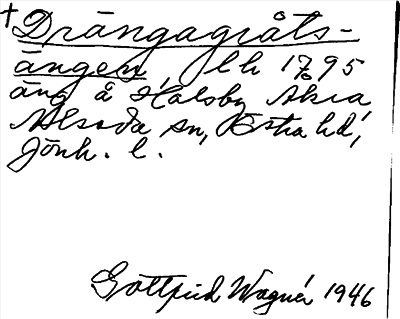 † Drängagråts-
ängen, lh 1795
äng å Holsby
Alseda sn, Östra hd,
Jönk. l.
Gottfrid Wagnér 1946